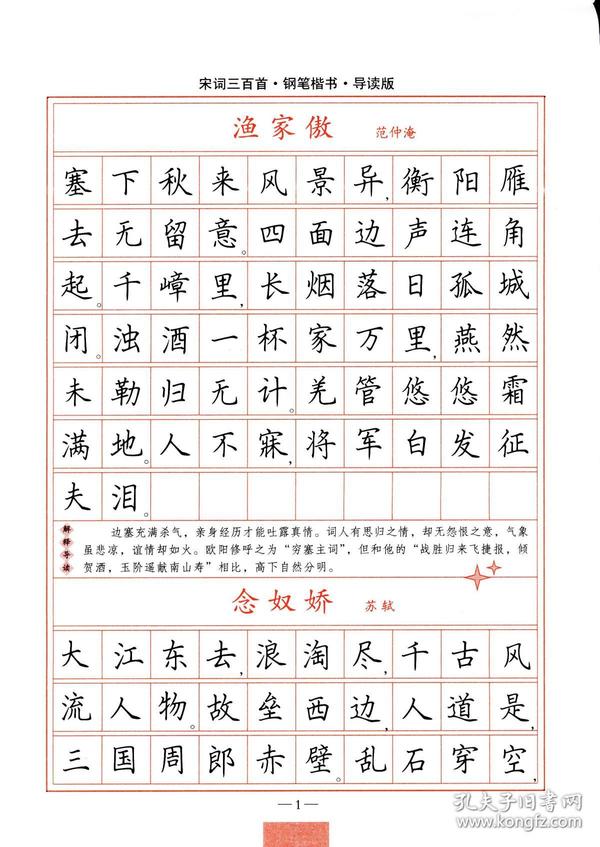 宋词三百首·钢笔楷书·导读版
渔家傲 范仲淹
塞下秋来风景异,衡阳雁
去无留意。四面边声连角
起。千嶂里,长烟落日孤城
闭。浊酒一杯家万里,燕然
未勒归无计。羌管悠悠霜
满地。人不寐,将军白发征
夫泪。
解释导读
边塞充满杀气，亲身经历才能吐露真情。词人有思归之情，却无怨恨之意，气象
虽悲凉，谊情却如火。欧阳修呼之为“穷塞主词”，但和他的“战胜归来飞捷报，倾
贺酒，玉阶遥献南山寿”相比，高下自然分明。
念奴娇 苏轼
大江东去,浪淘尽,千古风
流人物。故垒西边,人道是,
三国周郎赤壁。乱石穿空,
—1—
孔夫子旧书网
www.kongfz.com